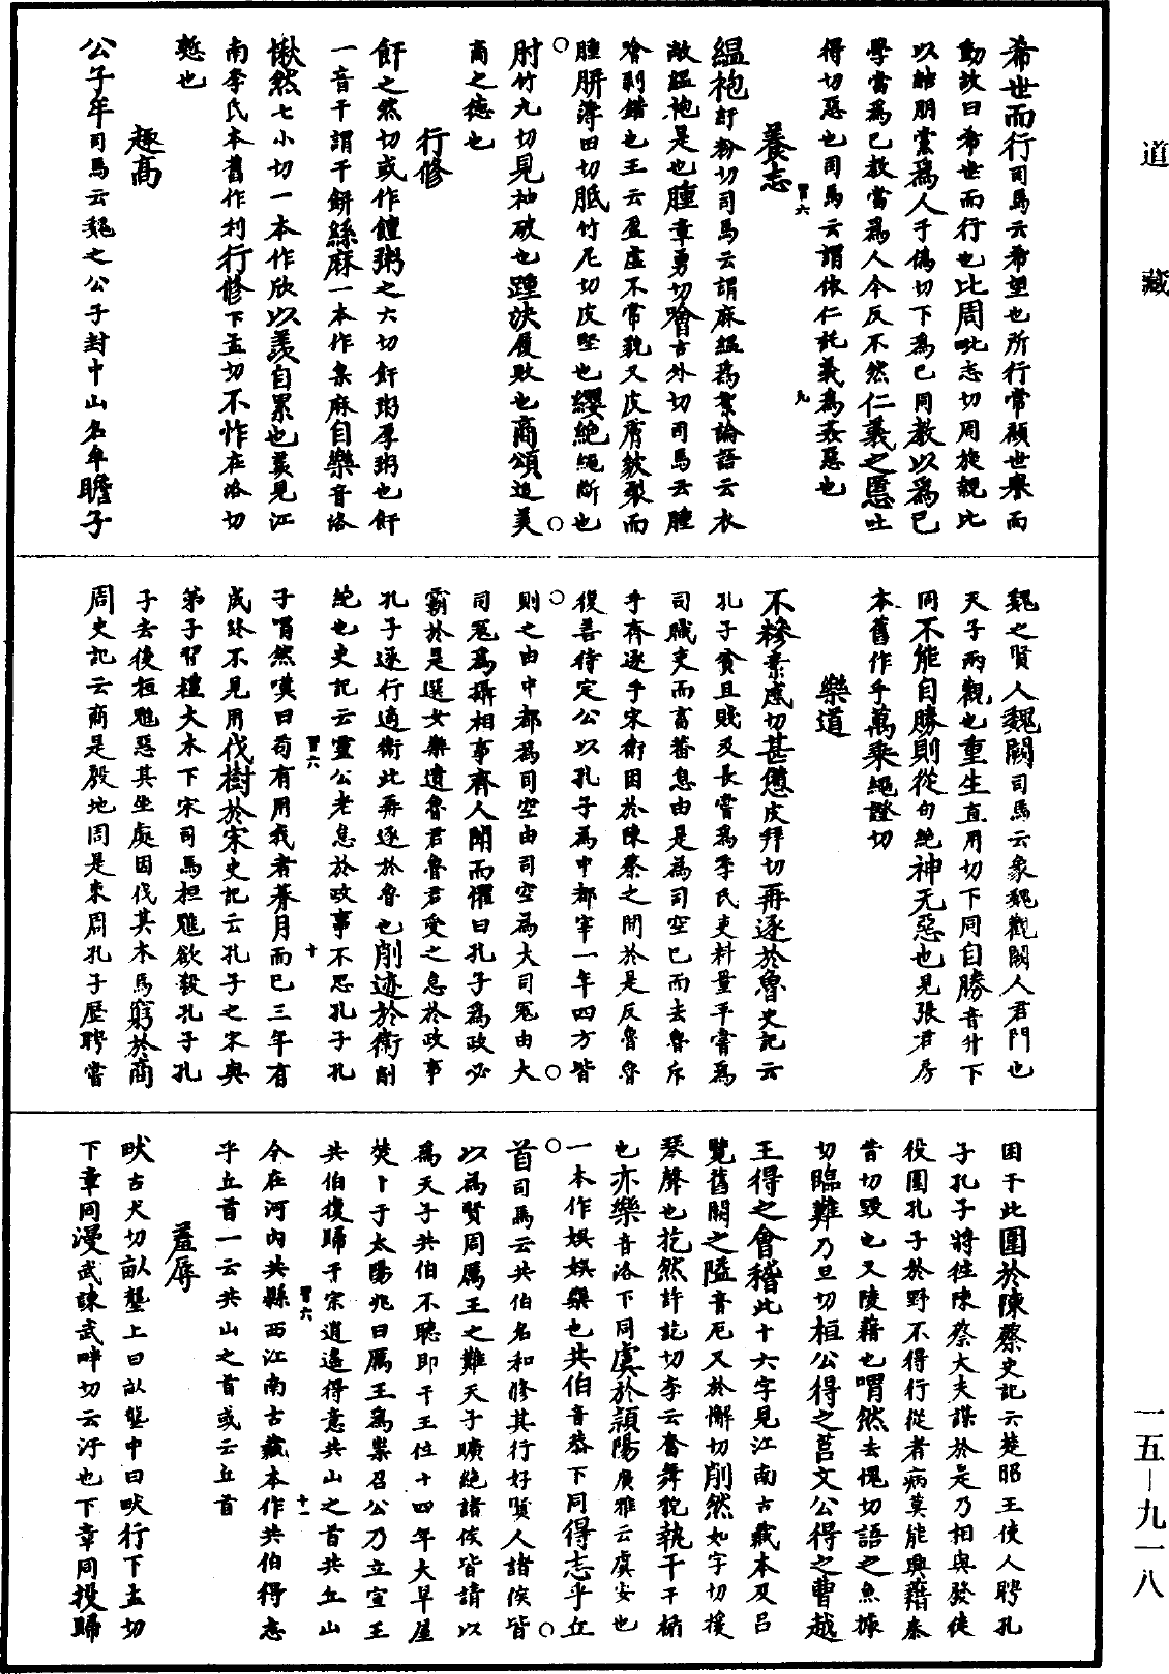 道藏
希世而行司馬云希望也所行常顧世舉而
動故曰希世而行也比周毗志切周旋親比
以結朋黨爲人于僞切下爲已同教以爲已
學當爲已教當爲人今反不然仁義之慝吐
得切惡也司馬云謂依仁託義爲姦惡也
養志
緼袍紆粉切司馬云謂麻緼爲絮論語云衣
敝緼袍是也腫章勇切噲古外切司馬云腫
噲剝錯也王云盈虛不常貌又皮膚皴裂而
腫胼薄田切胝竹尼切皮堅也纓絶繩斷也
肘竹九切見袖破也踵決履敗也商頌追美
商之德也
行修
飦之然切或作饘粥之六切飦粥厚粥也飦
一音干謂干餅絲麻一本作枲麻自樂音洛
愀然七小切一本作欣以羨自累也羨見江
南李氏本舊作利行修下孟切不怍在洛切
慙也
趣高
公子牟司馬云魏之公子封中山名牟瞻子
魏之賢人魏闕司馬云象魏觀闕人君門也
天子兩觀也重生直用切下同自勝音升下
同不能自勝則從句絶神无惡也見張君房
本舊作乎萬乘繩證切
樂道
不糝素感切甚憊皮拜切再逐於魯史記云
孔子貧且賤及長嘗爲季氏吏料量平嘗爲
司職吏而畜蕃息由是爲司空已而去魯斥
乎齊逐乎宋衛困於陳蔡之間於是反魯魯
復善待定公以孔子爲中都宰一年四方皆
則之由中都爲司空由司空爲大司冦由大
司冦爲攝相事齊人聞而懼曰孔子爲政必
霸於是選女樂遺魯君魯君受之怠於政事
孔子遂行適衛此再逐於魯也削迹於衛削
絶也史記云靈公老怠於政事不思孔子孔
子喟然嘆曰苟有用我者朞月而已三年有
成終不見用伐樹於宋史記云孔子之宋與
弟子習禮大木下宋司馬桓魋欲殺孔子孔
子去後桓魋惡其坐處因伐其木焉窮於商
周史記云商是殷地周是東周孔子歷聘嘗
困于此圍於陳蔡史記云楚昭王使人聘孔
子孔子將往陳蔡大夫謀於是乃相與發徒
役圍孔子於野不得行從者病莫能興藉秦
昔切毀也又陵藉也喟然去愧切語之魚據
切臨難乃旦切桓公得之莒文公得之曹越
王得之會稽此十六字見江南古藏本及吕
覽舊闕之隘音厄又於懈切削然如字切援
琴聲也扢然許訖切李云奮舞貌執干干楯
也亦樂音洛下同虞於潁陽廣雅云虞安也
一本作娛娛樂也共伯音恭下同得志乎丘
首司馬云共伯名和修其行好賢人諸侯皆
以爲賢周厲王之難天子曠絶諸侯皆請以
爲天子共伯不聽即干王位十四年大旱屋
焚卜于太陽兆曰厲王爲祟召公乃立宣王
共伯復歸于宗逍遙得意共山之首共丘山
今在河内共縣西江南古藏本作共伯得志
乎丘首一云共山之首或云丘首
羞辱
畎古犬切畝壟上曰畝壟中曰畎行下孟切
下章同漫武諫武畔切云汙也下章同投歸
習六
九
習六
十
習六
十一
一五—九一八